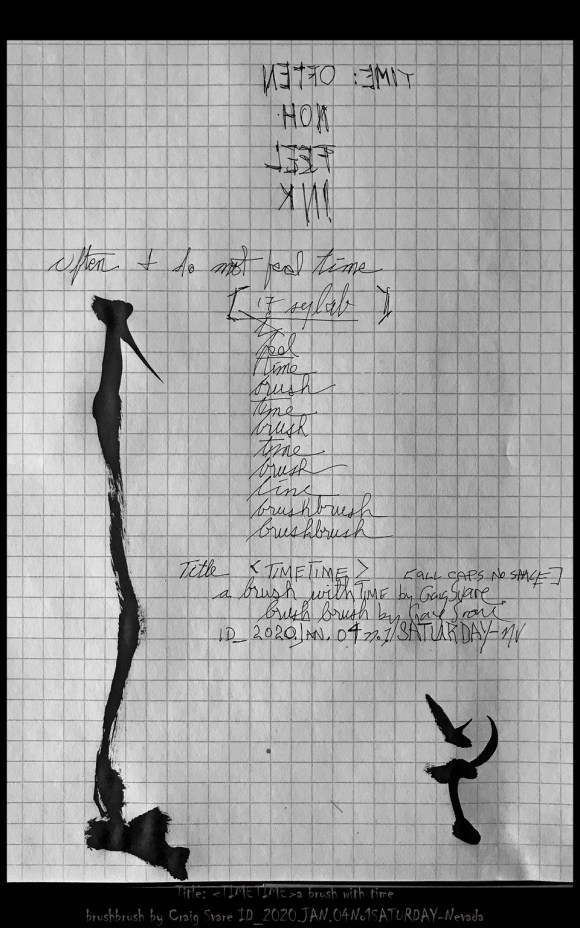 TIME: OFTEN
HOW
FEEL
INK
often I do not feel time
[ 17 sylab ]
I
feel
time
brush
time
brush
time
brush
line
brushbrush
brushbrush
Title <TIMETIME> [ALL CAPS NO SPACE]
a brush with TIME by Craig Svare
brush brush by Craig Svare
ID_2020.JAN.04 no.1/SATURDAY-NV
Title: <TIMETIME>a brush with time
brushbrush by Craig Svare ID_2020.JAN.04No1SATURDAY-Nevada